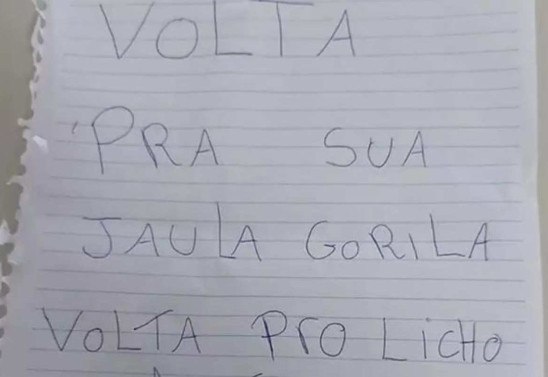 VOLTA
PRA SUA
JAULA GORILA
VOLTA PRO LiCHO